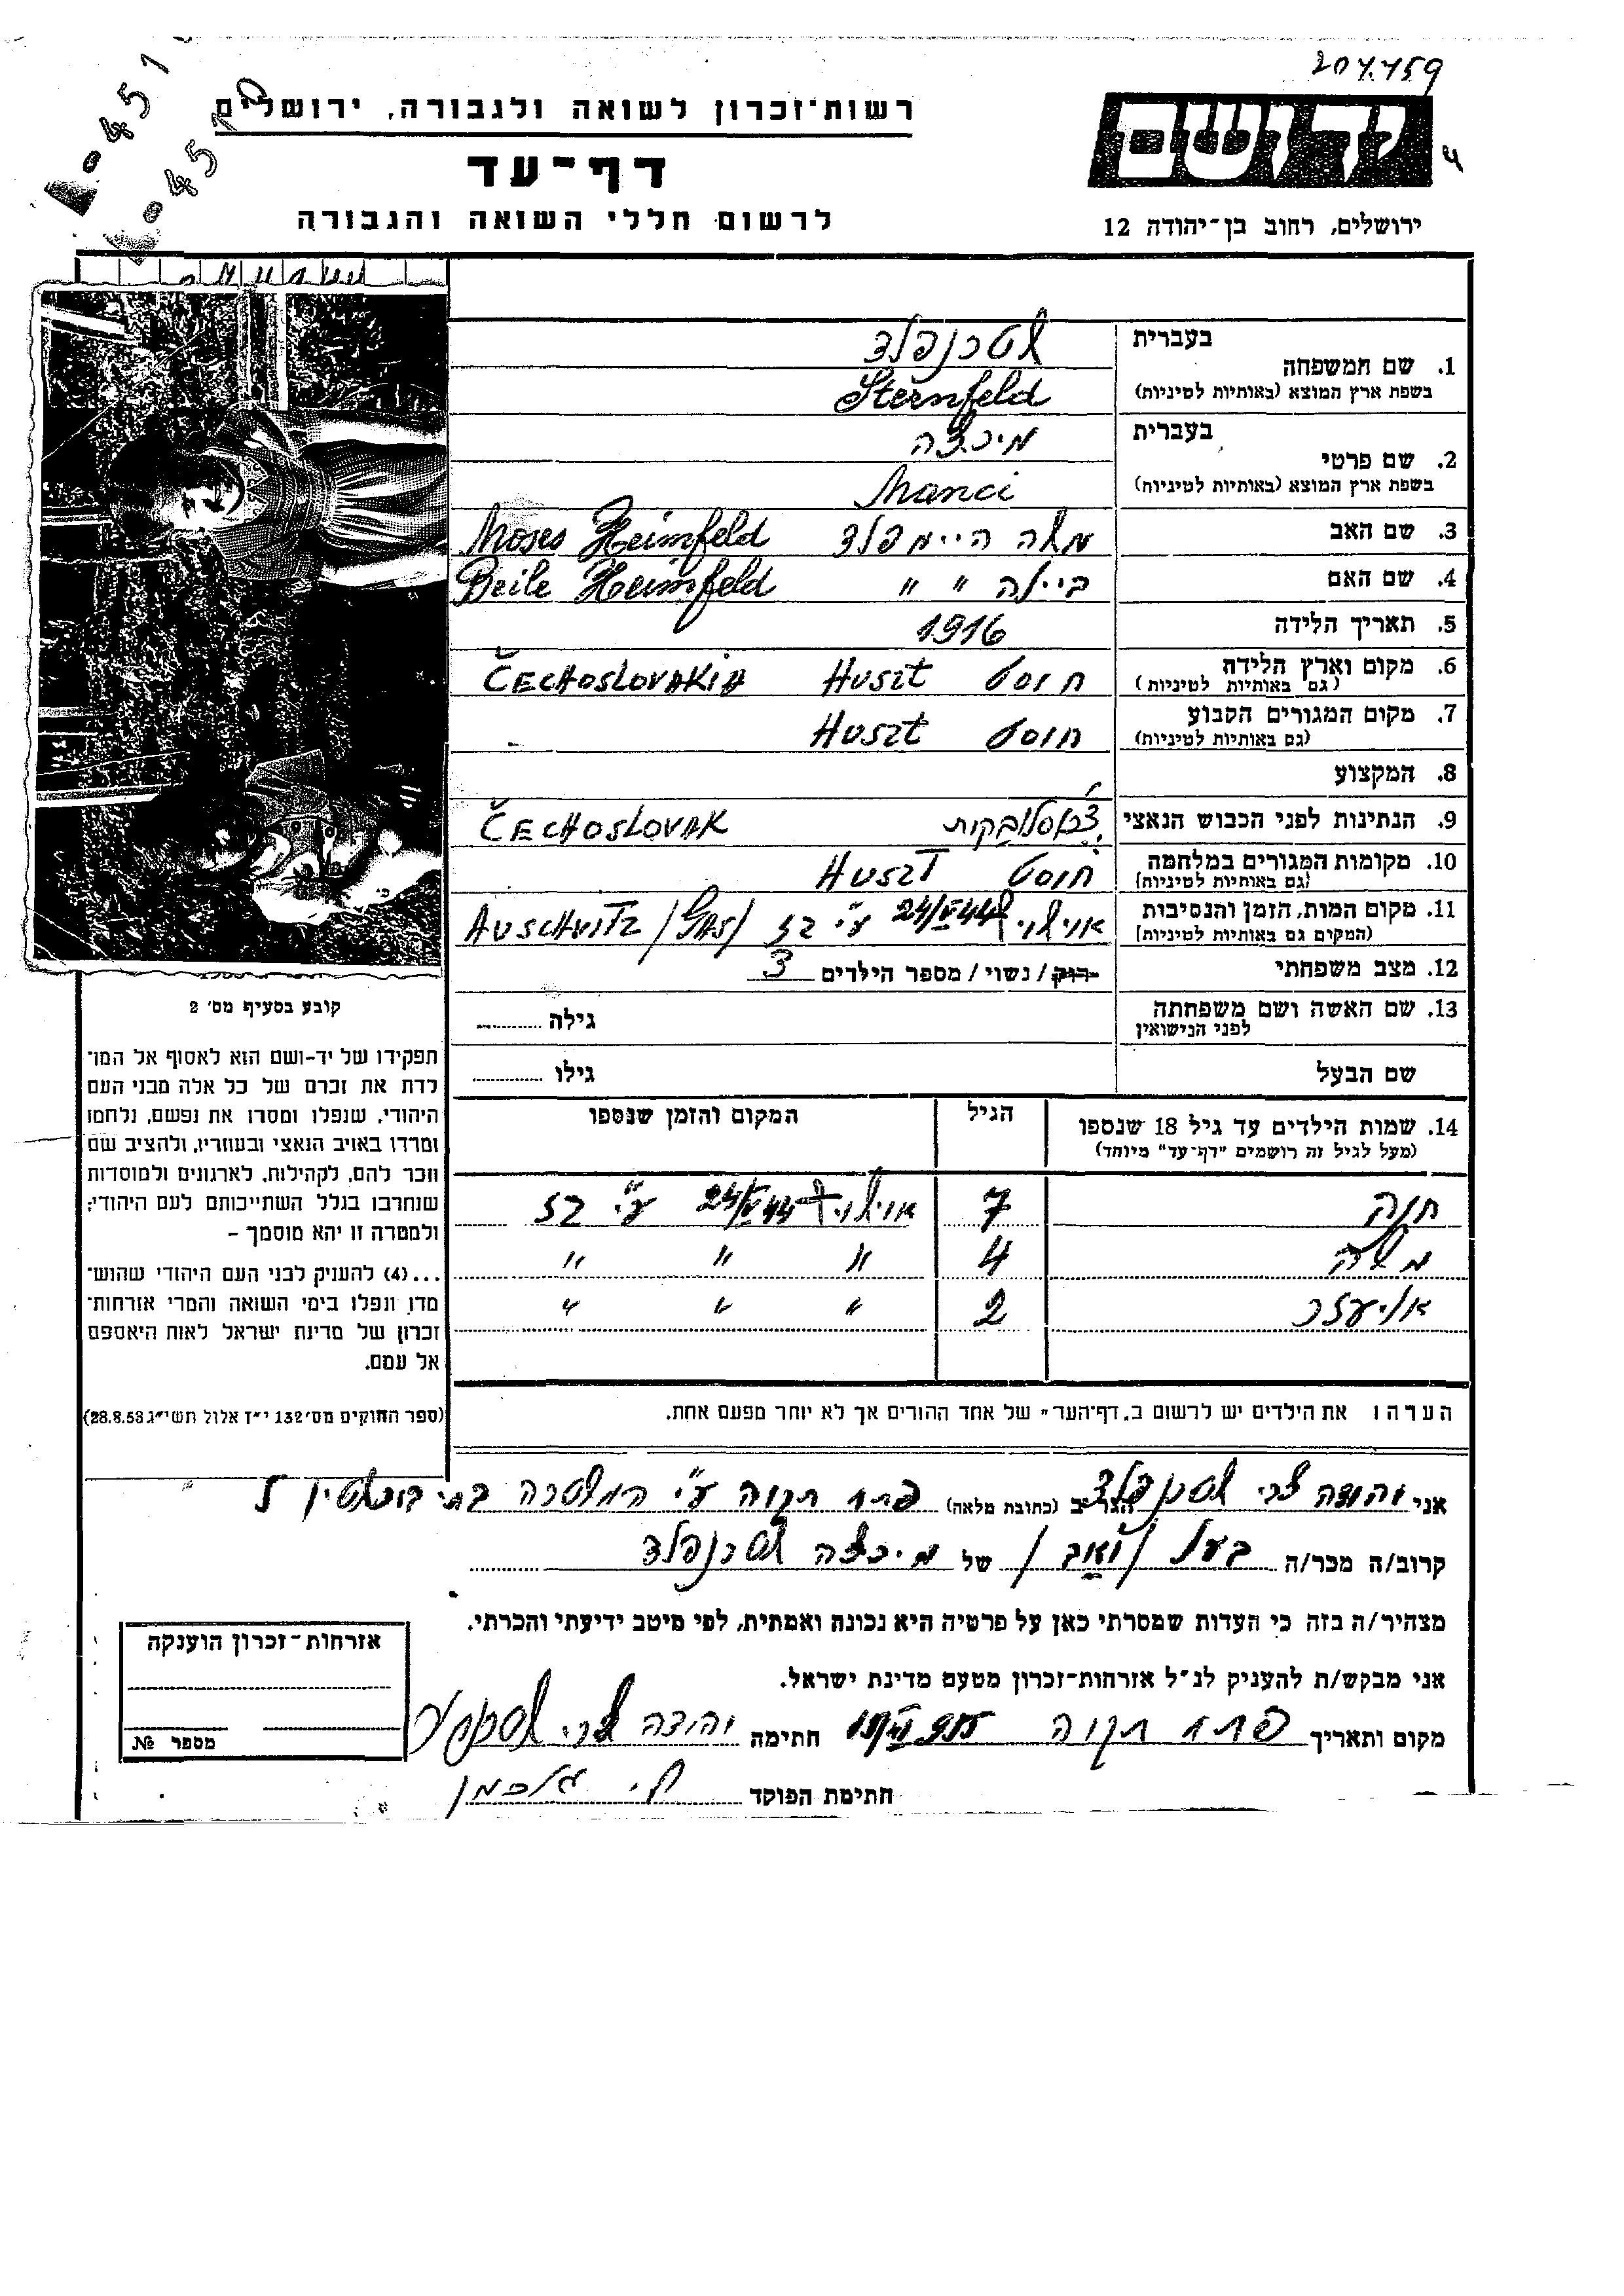 רשות־זכרון לשואה ולגבורה, ירושלים
דף־עד
לרשום חללי השואה והגבורה
ידושם
ירושלים, רחוב בן־יהודה 12
בעברית
שטרנפלד
1. שם המשפחה
בשפת ארץ המוצא (באותיות לטיניות)
Sternfeld
בעברית
מירצה
2. שם פרטי
בשפת ארץ המוצא (באותיות לטיניות)
Manci
3. שם האב משה היימפלד Moses Heimfeld
4. שם האם ביילה " " Beile Heimfeld
5. תאריך הלידה 1916
6. מקום וארץ הלידה חוסט Huszt ČECHOSLOVAKIA
(גם באותיות לטיניות)
7. מקום המגורים הקבוע חוסט Huszt
(גם באותיות לטיניות)
8. המקצוע
9. הנתינות לפני הכבוש הנאצי ČECHOSLOVAK
10. מקומות המגורים במלחמה חוסט HUSZT
(גם באותיות לטיניות)
11. מקום המות, הזמן והנסיבות 24/V 44 ע"י גז AUSCHVITZ /GAS/
(המקום גם באותיות לטיניות)
12. מצב משפחתי רוק / נשוי / מספר הילדים 3
13. שם האשה ושם משפחתה גילה
לפני הנישואין
שם הבעל גילו
14. שמות הילדים עד גיל 18 שנספו הגיל המקום והזמן שנספו
(מעל לגיל זה רושמים "דף־עד" מיוחד)
חנה 7 24/V 44 ע"י גז
משה 4 " " "
אליעזר 2 " " "
הערה: את הילדים יש לרשום ב"דף־העד" של אחד ההורים אך לא יותר מפעם אחת.
קובע בסעיף מס' 2
תפקידו של יד-ושם הוא לאסוף אל המו־
לדת את זכרם של כל אלה מבני העם
היהודי, שנפלו ומסרו את נפשם, נלחמו
ומרדו באויב הנאצי ובעוזריו, ולהציב שם
וזכר להם, לקהילות, לארגונים ולמוסדות
שנחרבו בגלל השתייכותם לעם היהודי;
ולמטרה זו יהא מוסמך –
...(4) להעניק לבני העם היהודי שהוש־
מדו ונפלו בימי השואה והמרי אזרחות־
זכרון של מדינת ישראל לאות היאספם
אל עמם.
(ספר החוקים מס' 132 י"ז אלול תשי"ג 28.8.53)
אני יהודה צבי שטרנפלד הגר/ב (כתובת מלאה) פתח תקוה ע"י המשטרה בתי
קרוב/ה מכר/ה בעל /ואב/ של מירצה שטרנפלד
מצהיר/ה בזה כי העדות שמסרתי כאן על פרטיה היא נכונה ואמתית, לפי מיטב ידיעתי והכרתי.
אני מבקש/ת להעניק לנ"ל אזרחות-זכרון מטעם מדינת ישראל.
מקום ותאריך פתח תקוה חתימה יהודה צבי
חתימת הפוקד
אזרחות־זכרון הוענקה
מספר №